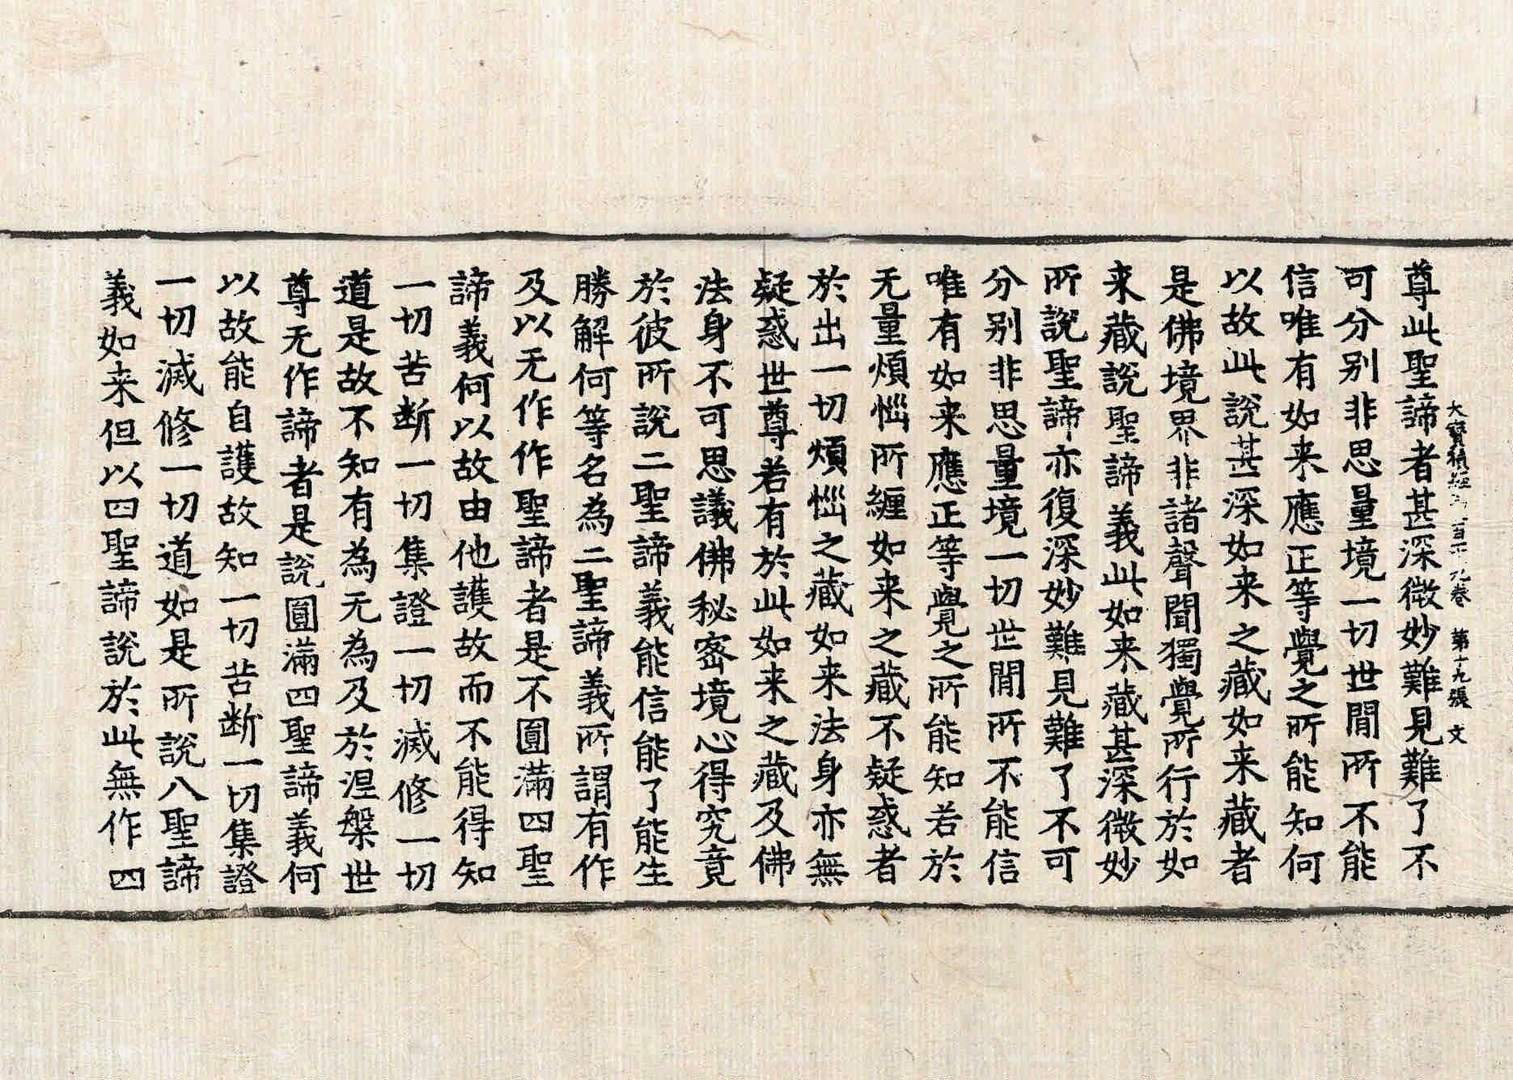 大寶積經 百十九卷 第十九張 文
尊此聖諦者甚深微妙難見難了不
可分别非思量境一切世閒所不能
信唯有如来應正等覺之所能知何
以故此説甚深如来之藏如来藏者
是佛境界非諸聲聞獨覺所行於如
来藏説聖諦義此如来藏甚深微妙
所説聖諦亦復深妙難見難了不可
分别非思量境一切世閒所不能信
唯有如来應正等覺之所能知若於
无量煩惱所纏如来之藏不疑惑者
於出一切煩惱之藏如来法身亦無
疑惑世尊若有於此如来之藏及佛
法身不可思議佛秘密境心得究竟
於彼所説二聖諦義能信能了能生
勝解何等名為二聖諦義所謂有作
及以无作作聖諦者是不圓滿四聖
諦義何以故由他護故而不能得知
一切苦断一切集證一切滅修一切
道是故不知有為无為及於涅槃世
尊无作諦者是説圓滿四聖諦義何
以故能自護故知一切苦断一切集證
一切滅修一切道如是所説八聖諦
義如来但以四聖諦説於此無作四